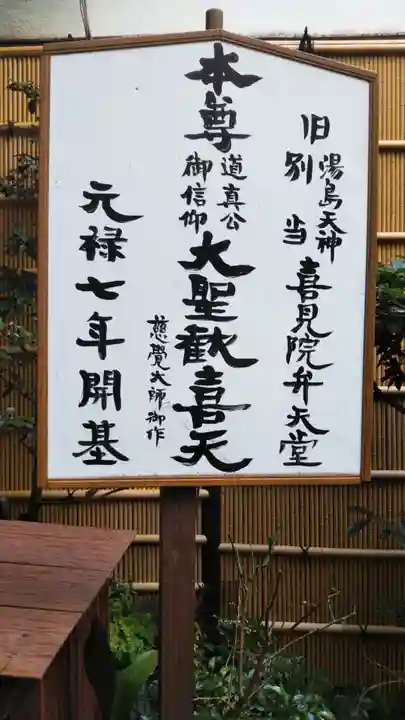 旧別当 湯島天神 喜見院弁天堂
本尊 道真公御信仰 大聖歓喜天
慈覺大師御作
元禄七年開基